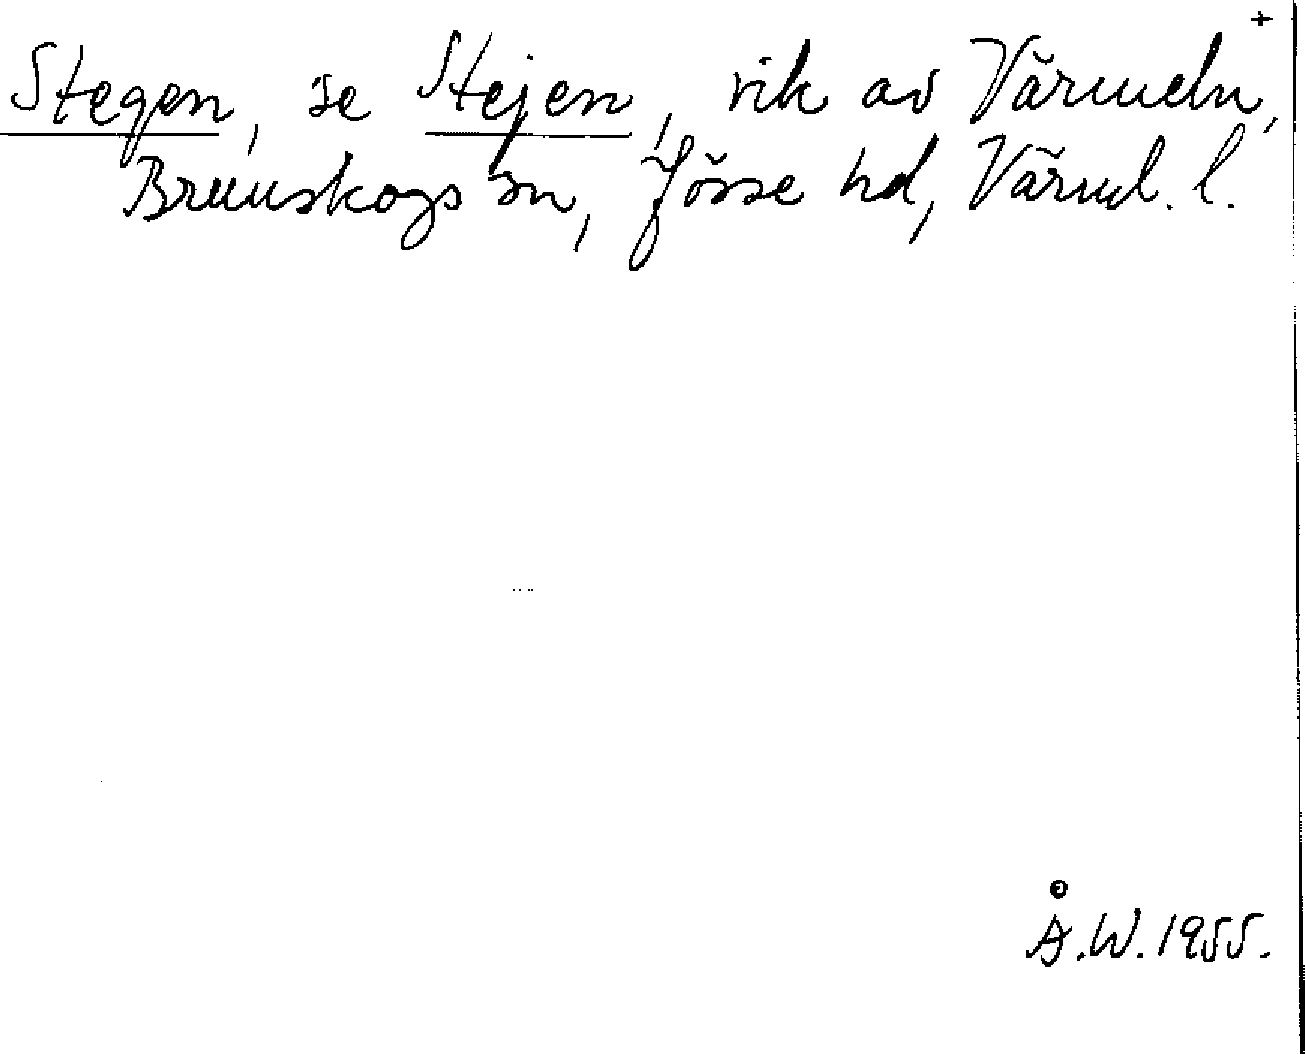 +
Stegen, se Stejen, vik av Värmeln,
Brunskogs sn, Jösse hd, Värml. l.
Å.W. 1955.